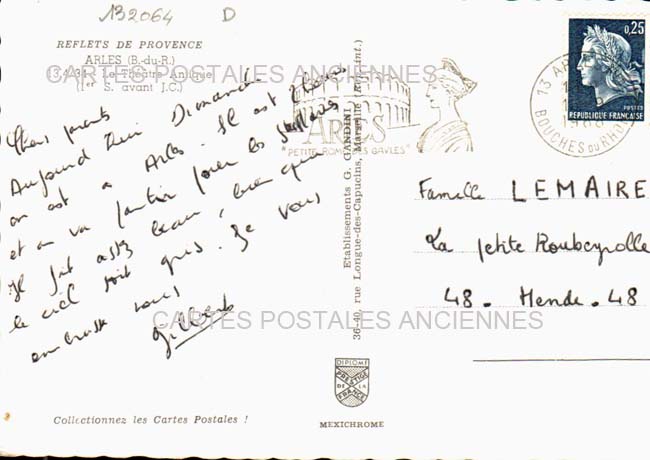 132064 D
REFLETS DE PROVENCE
ARLES (B.-du-R.)
13.4.34 - Le Théâtre Antique
(1er S. avant J.C.)
CARTES POSTALES ANCIENNES
Chers parents
Aujourd'hui Dimanche
on est à Arles. Il est 2 heures
et on va partir pour les
Il fait assez beau, bien que
le ciel soit gris. Je vous
embrasse tous
Gilbert
Etablissements G. GANDINI
36-40, rue Longue-des-Capucins, Marseille
ARLES
"PETITE ROME DES GAULES"
13 ARLES
BOUCHES DU RHONE
0,25
POSTES
REPUBLIQUE FRANÇAISE
Famille LEMAIRE
La petite Roubeyrolle
48. Mende. 48
CARTES POSTALES ANCIENNES
DIPLOME
PRESTIGE
DE LA
FRANCE
MEXICHROME
Collectionnez les Cartes Postales !